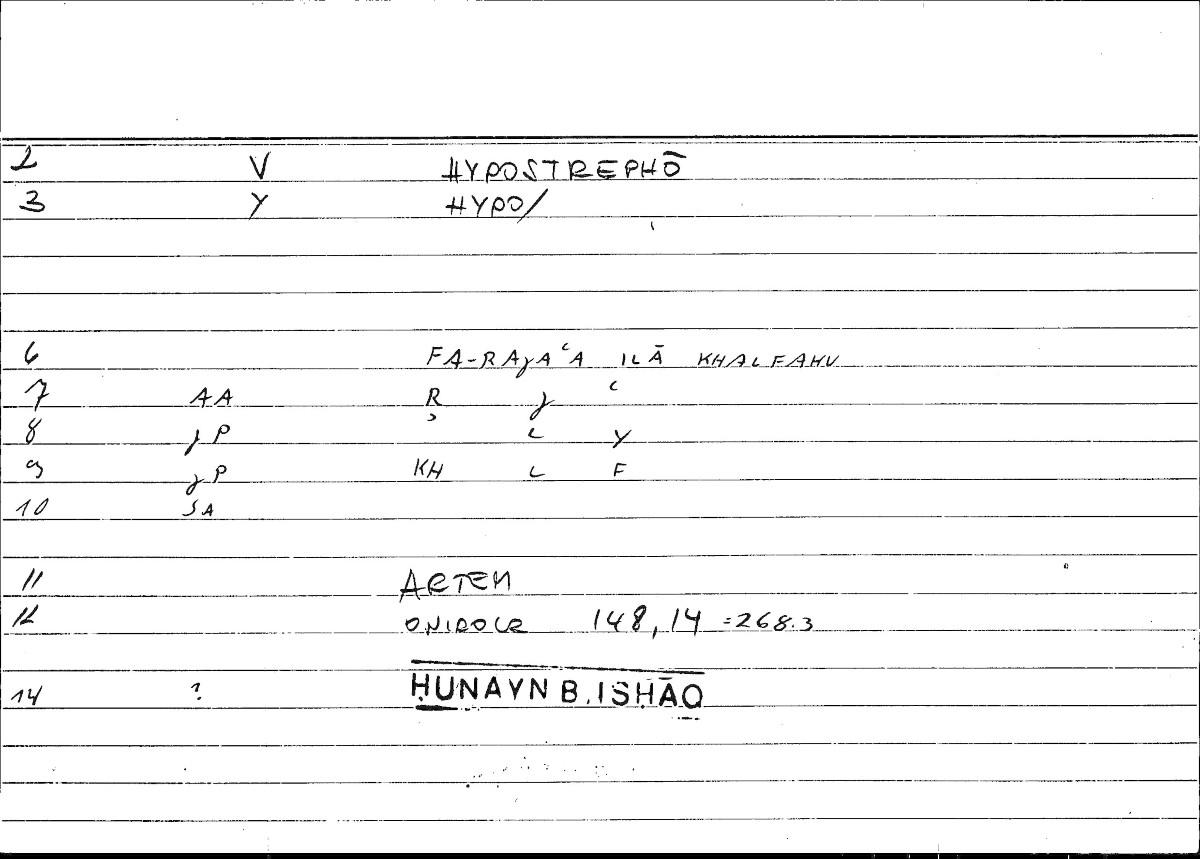 2 V HYPOSTREPHŌ
3 Y HYPO/
6 FA-RAJAʿA ILĀ KHALFAHU
7 AA R J ʿ
8 JP ʾ L Y
9 JP KH L F
10 SA
11 ARTEM
12 ONIROCR 148,14 =268.3
14 ? ḤUNAYN B. ISḤĀQ